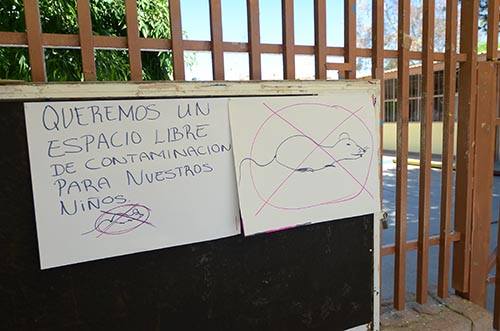 QUEREMOS UN
ESPACIO LIBRE
DE CONTAMINACION
PARA NUESTROS
NIÑOS.